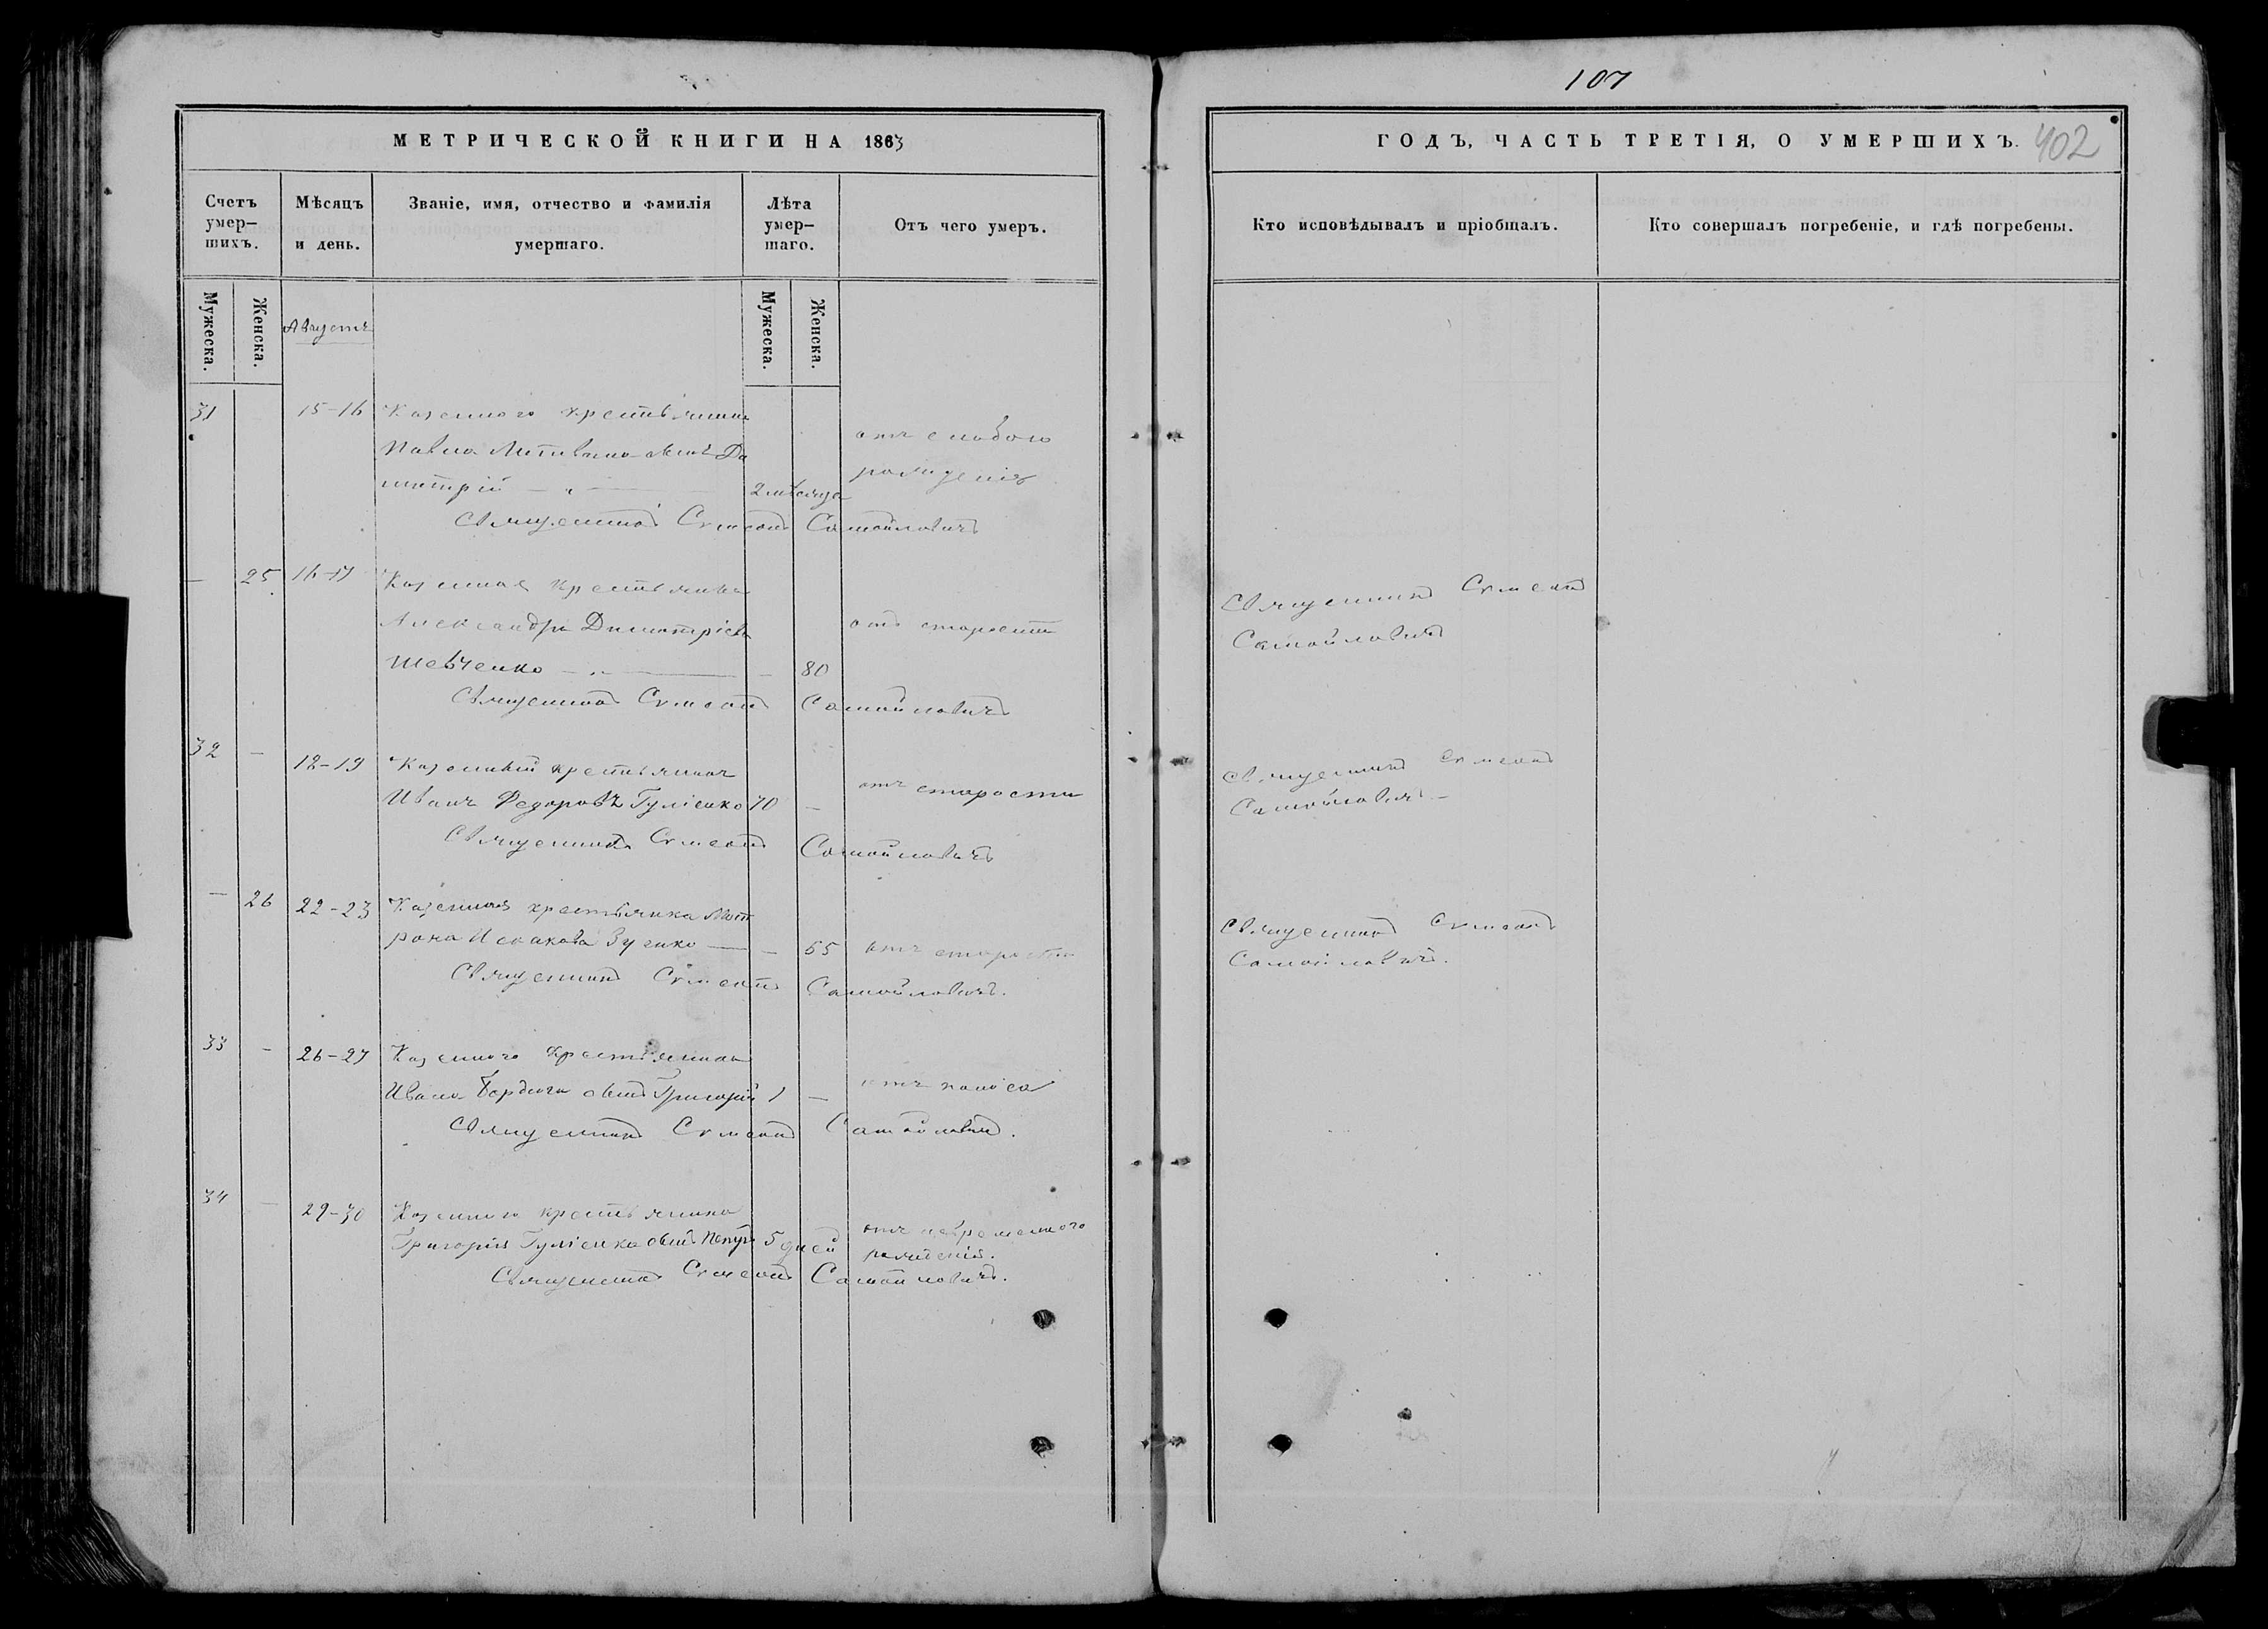 107
МЕТРИЧЕСКОЙ КНИГИ НА 1863
ГОДЪ, ЧАСТЬ ТРЕТІЯ, О УМЕРШИХЪ.
402
Счетъ умер-шихъ.
Мѣсяцъ и день.
Званіе, имя, отчество и фамилія умершаго.
Лѣта умер-шаго.
Отъ чего умеръ.
Кто исповѣдывалъ и пріобщалъ.
Кто совершалъ погребеніе, и гдѣ погребены.
Мужеска.
Женска.
Августъ
Мужеска.
Женска.
31 15-16 Казенного крестьянина
Павла сынъ Ди
митрій 2 мѣсяца
отъ слабого
рожденія
Священникъ Сѵмеонъ Самойловичъ
— 25 16-17 Казенная крестьянка
Александра Димитріева
Шевченко — 80
отъ старости
Священникъ Сѵмеонъ Самойловичъ
Священникъ Сѵмеонъ
Самойловичъ
32 — 18-19 Казенный крестьянинъ
Иванъ Федоровъ Гуліенко 70 —
отъ старости
Священникъ Сѵмеонъ Самойловичъ
Священникъ Сѵмеонъ
Самойловичъ
— 26 22-23 Казенная крестьянка Мот
рона Исаакова Зуенко — 65 отъ старости
Священникъ Сѵмеонъ Самойловичъ.
Священникъ Сѵмеонъ
Самойловичъ.
33 — 26-27 Казенного крестьянина
Ивана сынъ Григорій 1 —
отъ поноса
Священникъ Сѵмеонъ Самойловичъ.
34 — 29-30 Казенного крестьянина
Григорія Гуліенка сынъ Петръ 5 дней
отъ
рожденія.
Священникъ Сѵмеонъ Самойловичъ.